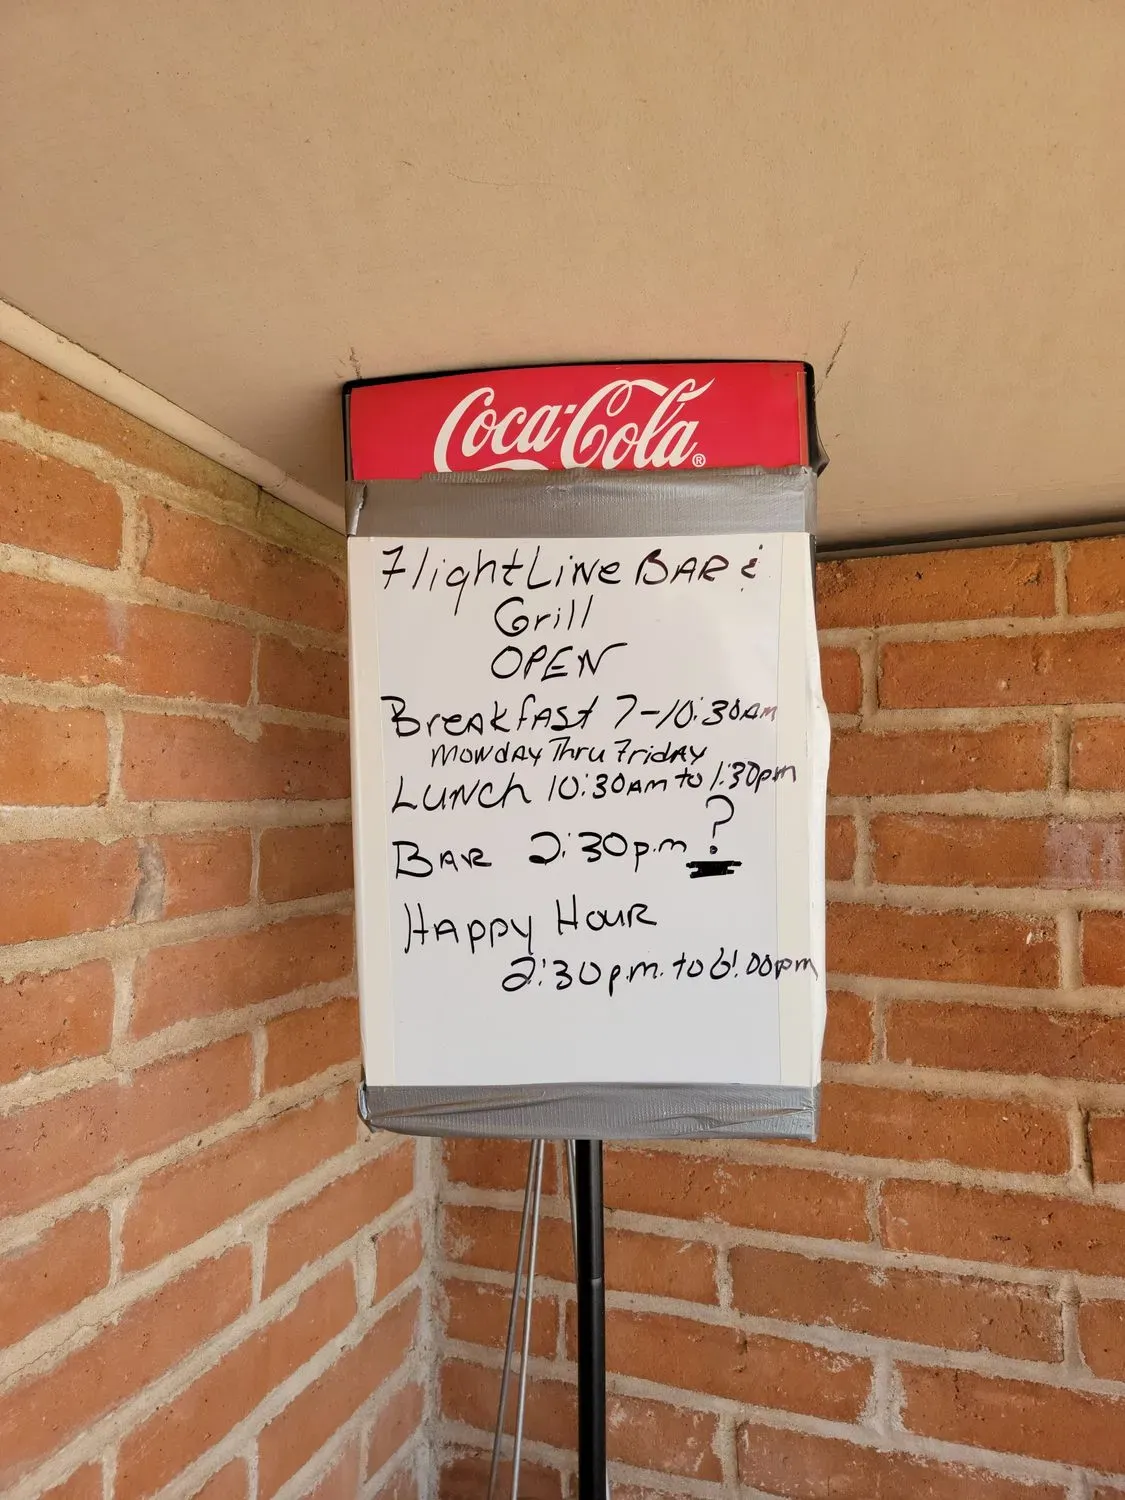 Coca-Cola®
FlightLine BAR &
Grill
OPEN
BreAkfAst 7-10:30Am
MondAy Thru FridAy
LUNch 10:30Am to 1:30pm
BAR 2:30p.m ?
HAppy Hour
2:30p.m. to 6:00pm